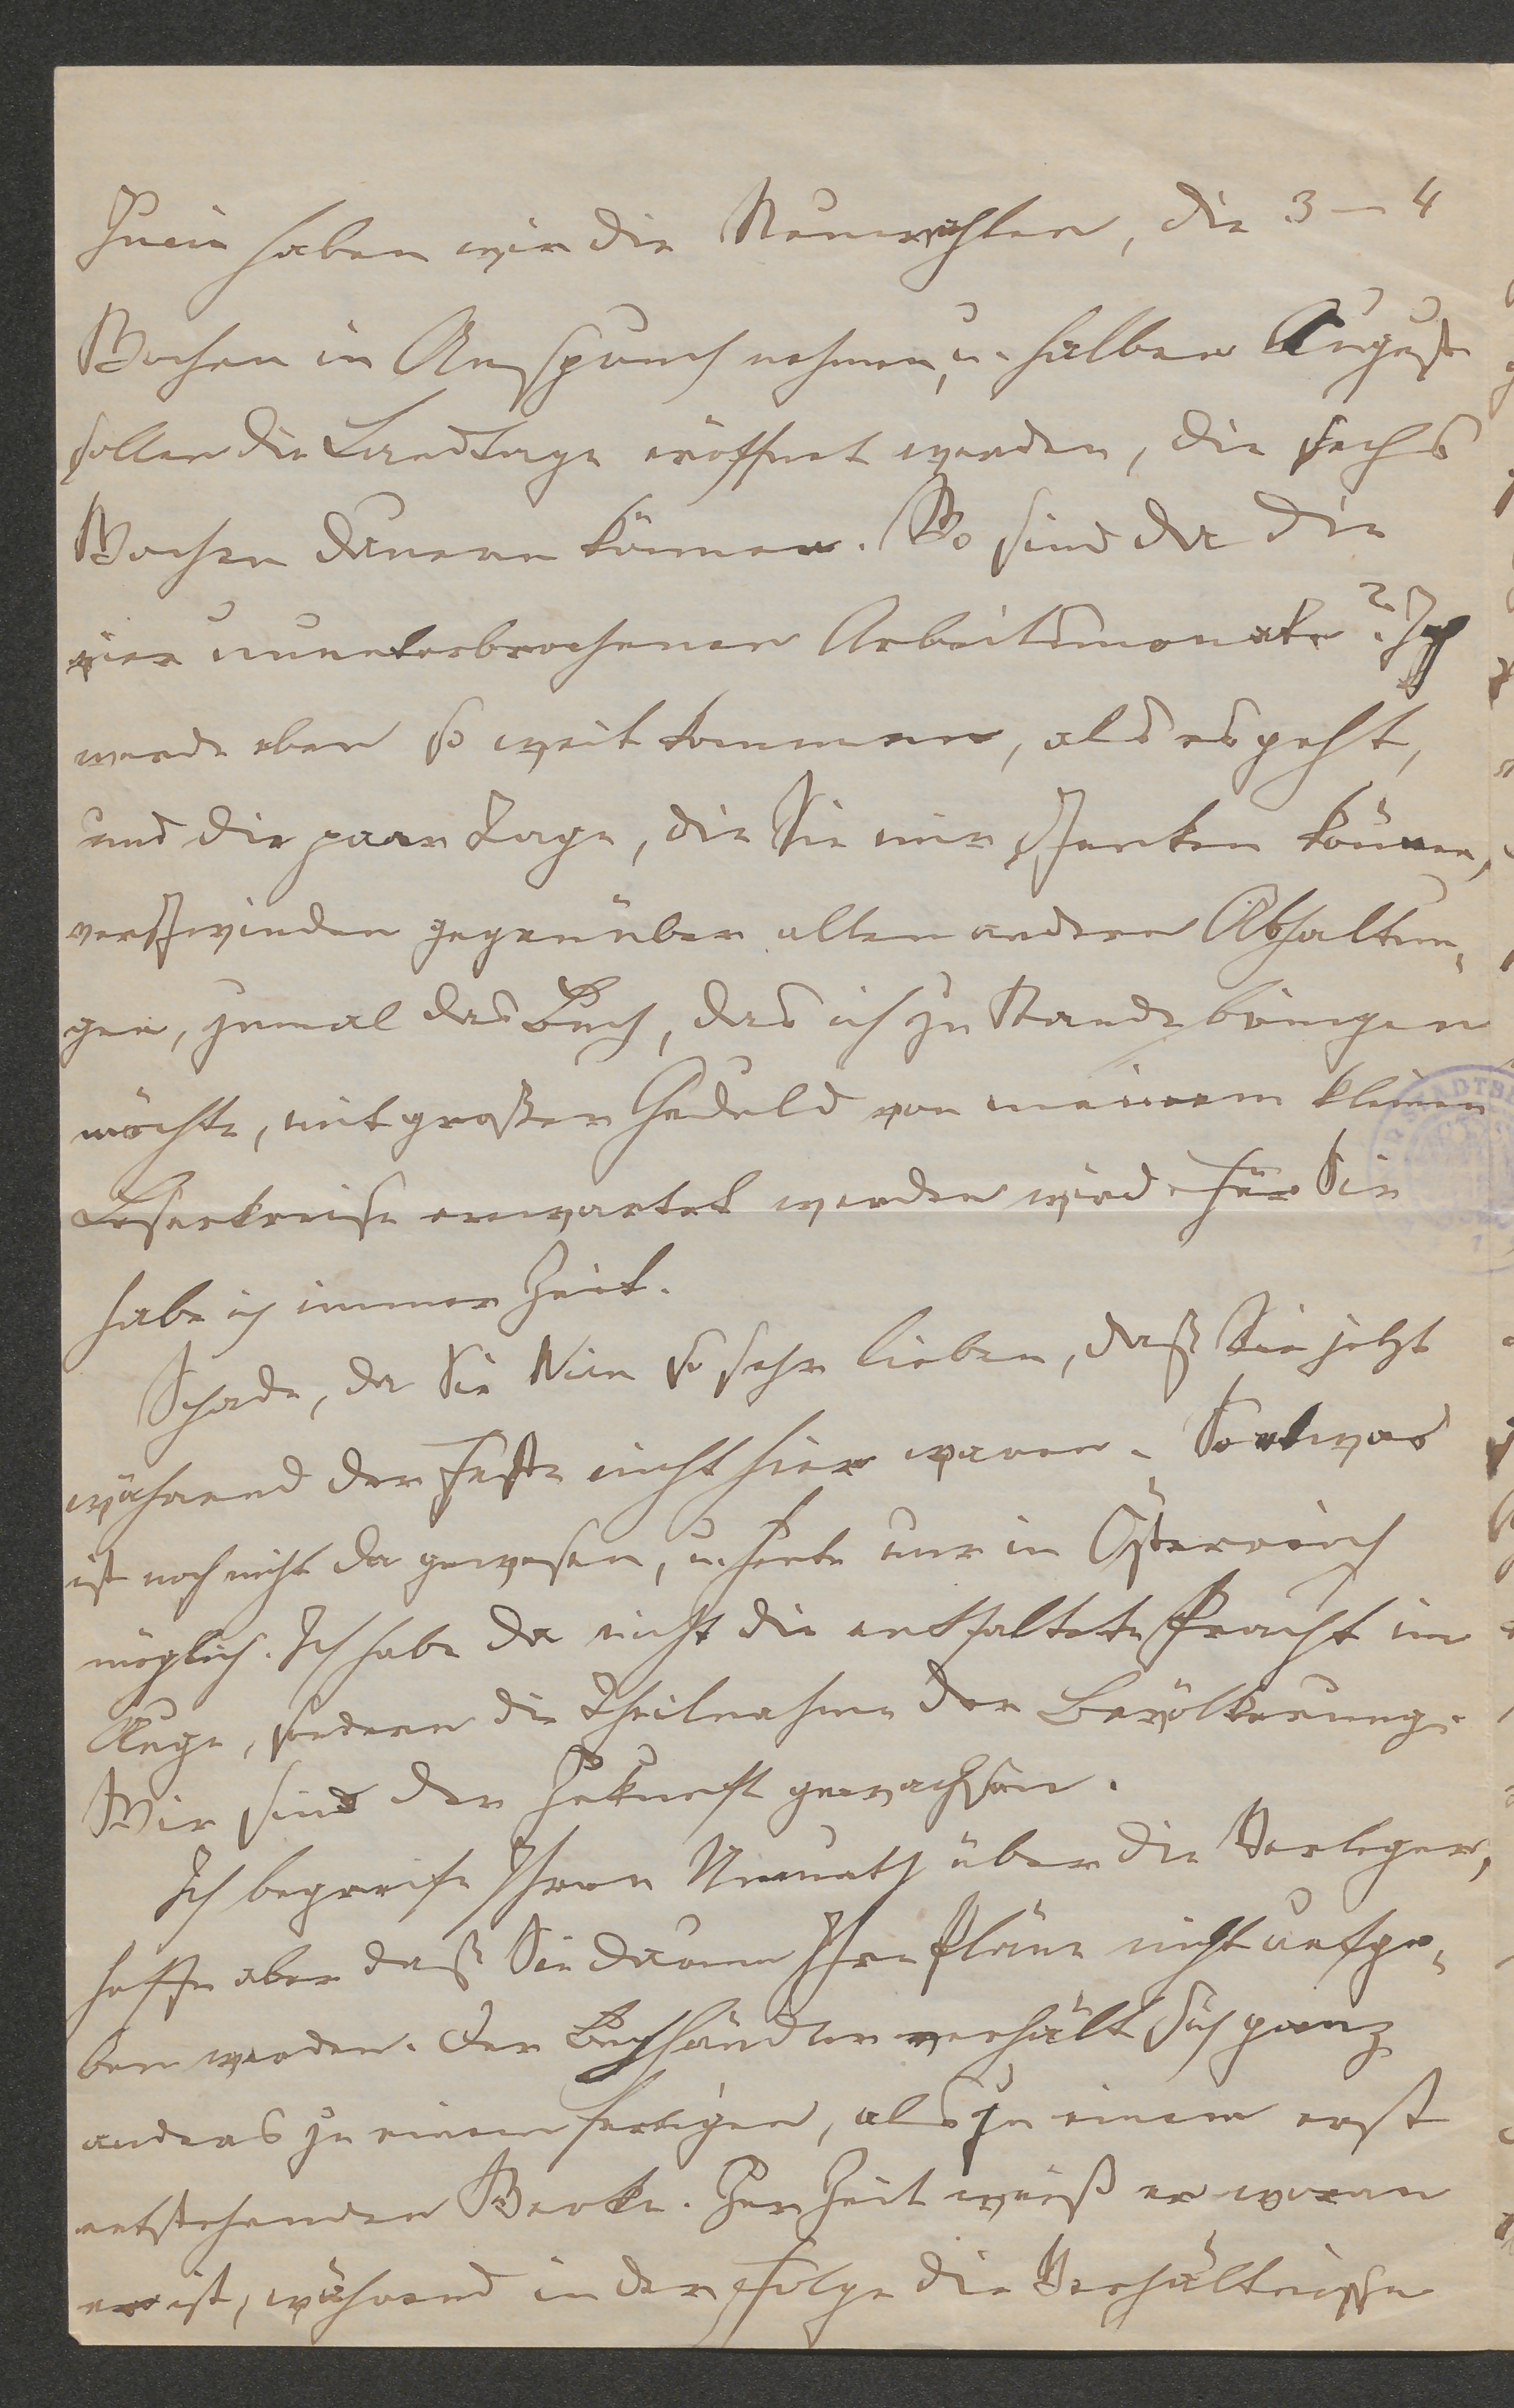 Juni haben wir die Neuwahlen, die 3–4
Wochen in Anspruch nehmen, u. halben August
sollen die Landtage eröffnet werden, die sechs
Wochen dauern können. Wo sind da die
vier ununterbrochenen Arbeitsmonate? Ich
werde eben so weit kommen, als es geht,
und die paar Tage, die Sie mir schenken können,
verschwinden gegenüber allen andern Abhaltun-
gen, zumal das Buch, das ich zu Stande bringen
möchte, mit großer Geduld von meinem kleinen
Leserkreise erwartet werden wird. Für Sie
habe ich immer Zeit.
Schade, da Sie Wien so sehr lieben, daß Sie jetzt
während der Feste nicht hier waren. So etwas
ist noch nicht da gewesen, u. heute nur in Österreich
möglich. Ich habe da nicht die entfaltete Pracht im
Auge, sondern die Theilnahme der Bevölkerung.
Wir sind der Zukunft gewachsen.
Ich begreife Ihren Unmuth über die Verleger,
hoffe aber daß Sie darum Ihre Pläne nicht aufge-
ben werden. Der Buchhändler verhält sich ganz
anders zu einem fertigen, als zu einem erst
entstehenden Werke. Zur Zeit weiß er woran
er ist, während in der Folge die Verhältnisse